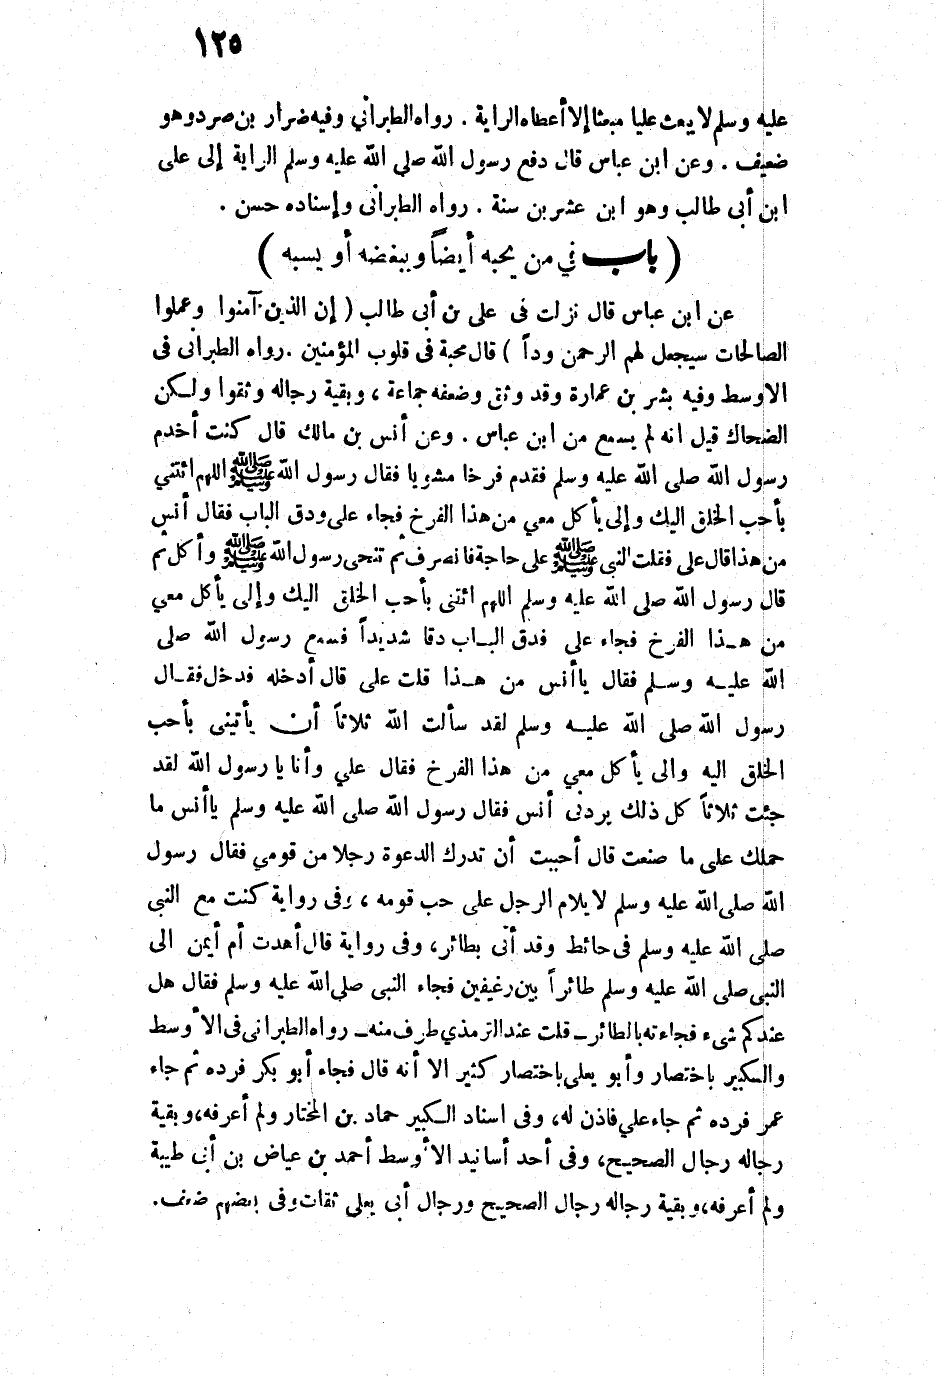 ١٢٥
عليه وسلم لا يبعث عليا مبعثا إلا أعطاه الراية . رواه الطبراني وفيه ضرار بن صرد وهو
ضعيف . وعن ابن عباس قال دفع رسول الله صلى الله عليه وسلم الراية إلى على
ابن أبى طالب وهو ابن عشر بن سنة . رواه الطبرانى وإسناده حسن .
( باب في من يحبه أيضاً ويبغضه أو يسبه )
عن ابن عباس قال نزلت فى على بن أبى طالب ( إن الذين آمنوا وعملوا
الصالحات سيجعل لهم الرحمن وداً ) قال محبة فى قلوب المؤمنين . رواه الطبرانى فى
الاوسط وفيه بشر بن عمارة وقد وثق وضعفه جماعة ، وبقية رجاله وثقوا ولكن
الضحاك قيل انه لم يسمع من ابن عباس . وعن أنس بن مالك قال كنت أخدم
رسول الله صلى الله عليه وسلم فقدم فرخا مشويا فقال رسول الله ﷺ اللهم ائتني
بأحب الخلق اليك وإلى يأكل معي من هذا الفرخ فجاء على ودق الباب فقال أنس
من هذا قال على فقلت النبى ﷺ على حاجة فانصرف ثم تنحى رسول الله ﷺ وأكل ثم
قال رسول الله صلى الله عليه وسلم اللهم ائتنى بأحب الخلق اليك وإلى يأكل معي
من هـذا الفرخ فجاء على فدق البـاب دقا شديداً فسمع رسول الله صلى
الله عليـه وسـلم فقال ياأنس من هـذا قلت على قال أدخله فدخل فقـال
رسول الله صلى الله عليـه وسلم لقد سألت الله ثلاثاً أن يأتينى بأحب
الخلق اليه والى يأكل معي من هذا الفرخ فقال علي وأنا يا رسول الله لقد
جئت ثلاثاً كل ذلك يردنى أنس فقال رسول الله صلى الله عليه وسلم ياأنس ما
حملك على ما صنعت قال أحببت أن تدرك الدعوة رجلا من قومي فقال رسول
الله صلى الله عليه وسلم لا يلام الرجل على حب قومه ، وفى رواية كنت مع النبى
صلى الله عليه وسلم فى حائط وقد أتى بطائر، وفى رواية قال أهدت أم أيمن الى
النبى صلى الله عليه وسلم طائراً بين رغيفين فجاء النبى صلى الله عليه وسلم فقال هل
عندكم شىء فجاءته بالطائر ـ قلت عند الترمذي طرف منه ـ رواه الطبرانى فى الأوسط
والكبير باختصار وأبو يعلى باختصار كثير الا أنه قال فجاء أبو بكر فرده ثم جاء
عمر فرده ثم جاء علي فاذن له، وفى اسناد الكبير حماد بن المختار ولم أعرفه، وبقية
رجاله رجال الصحيح، وفى أحد أسانيد الأوسط أحمد بن عياض بن أبى طيبة
ولم أعرفه، وبقية رجاله رجال الصحيح ورجال أبى يعلى ثقات وفى بعضهم ضعف.